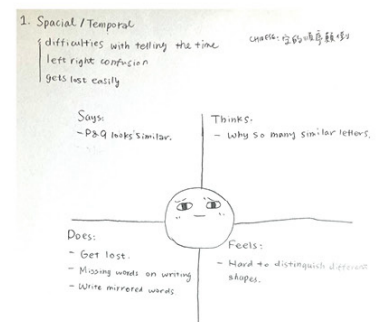 1. Spacial / Temporal
difficulties with telling the time
left right confusion
gets lost easily
CHINESE:
Says:
- P&Q looks similar.
Thinks:
- Why so many similar letters.
Does:
- Get lost.
- Missing words on writing
- Write mirrored words
Feels:
- Hard to distinguish different
shapes.